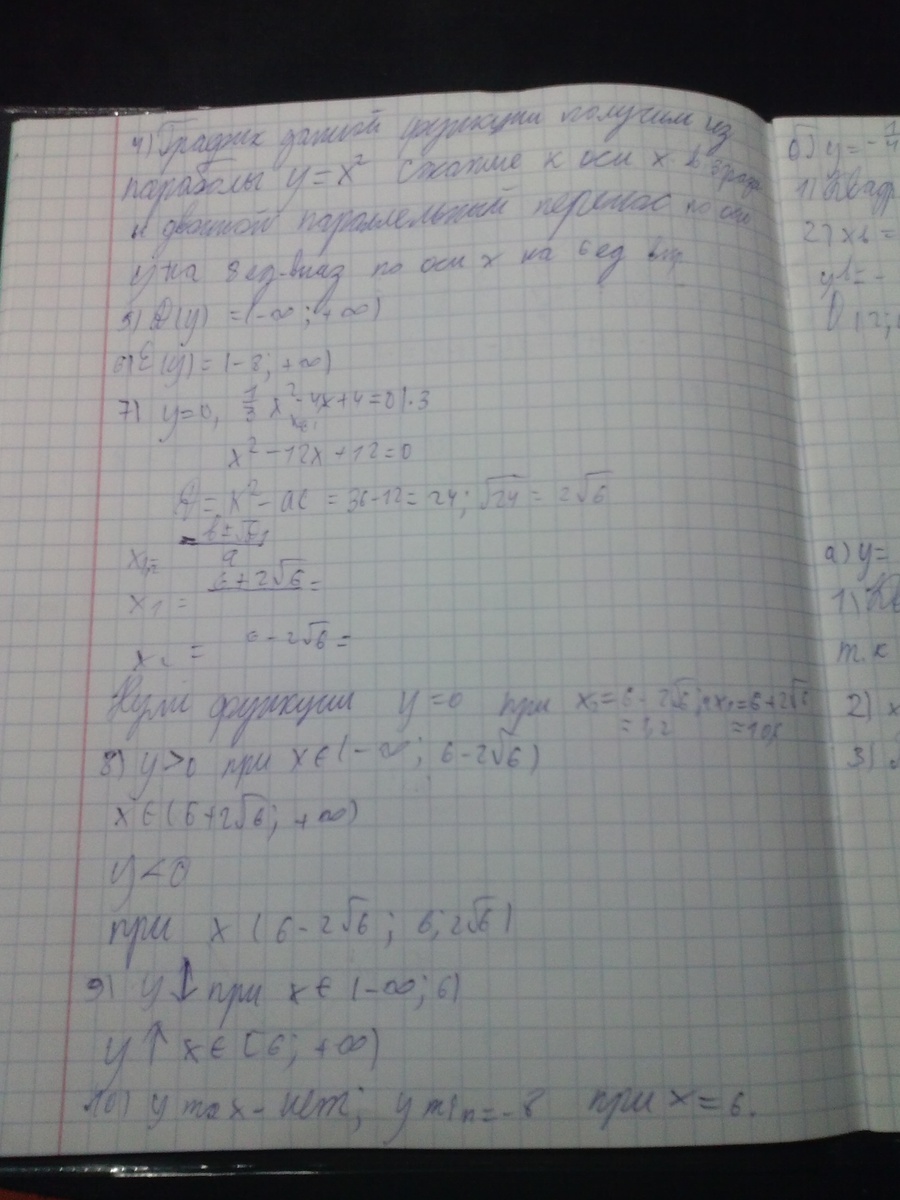 4) График данной функции получим из
параболы y=x² Сжатие к оси x в 3 раза
и двойной параллельный перенос по оси
y на 8 ед-вниз по оси x на 6 ед
5) D(y) = (-∞; +∞)
6) E(y) = (-8; +∞)
7) y=0, 1/3 x² - 4x+4=0 |·3
x² - 12x + 12 = 0
D = k² - ac = 36-12 = 24; √24 = 2√6
x₁,₂ =
a
x₁ = 6+2√6 =
x₂ = 6-2√6 =
Нули функции y=0 при x₂=6-2√6; x₁=6+2√6
=1,2 =10,8
8) y>0 при x∈(-∞; 6-2√6)
x∈(6+2√6; +∞)
y<0
при x (6-2√6; 6,2√6)
9) y↓ при x∈(-∞; 6)
y↑ x∈[6; +∞)
10) y max - нет; y min = -8 при x = 6.
б) y = -1/4
1) Квадр
2) xв =
yв = -
а) y =
1) Кв
т.к
2) x
3)